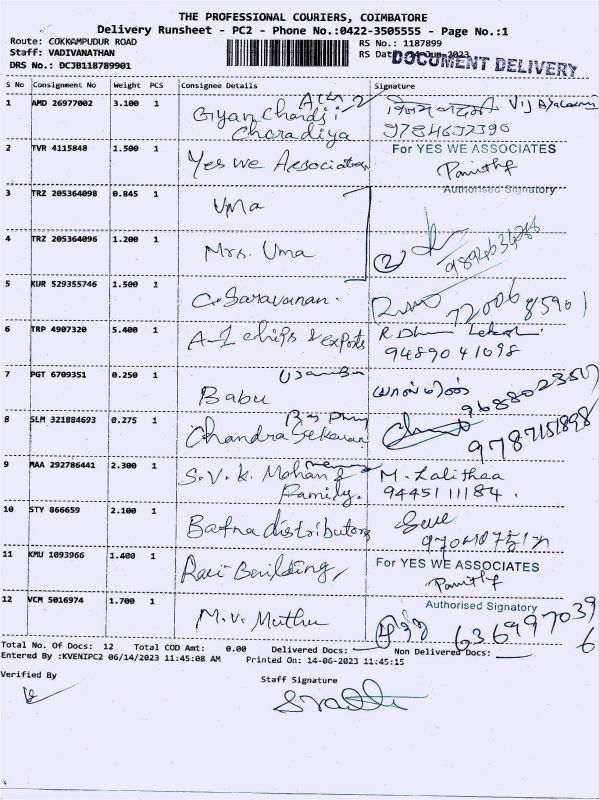 THE PROFESSIONAL COURIERS, COIMBATORE
Delivery Runsheet - PC2 - Phone No.:0422-3505555 - Page No.:1
Route: COKKAMPUDUR ROAD
RS No.: 1187899
Staff: VADIVANATHAN
RS Date: 14-Jun-2023
DOCUMENT DELIVERY
DRS No.: DCJB118789901
S No Consignment No Weight PCS Consignee Details Signature
1 AMD 26977002 3.100 1 Gyan Chandji
Choradiya
9784632390
2 TVR 4115848 1.500 1 Yes We Association
For YES WE ASSOCIATES
Authorised Signatory
3 TRZ 205364098 0.845 1 Uma
4 TRZ 205364096 1.200 1 Mrs. Uma
2
5 KUR 529355746 1.500 1 C. Saravanan.
72006 85901
6 TRP 4907320 5.400 1 A-1 chips & exports
94890 41098
7 PGT 6709351 0.250 1 Babu
8 SLM 321884693 0.275 1 Chandra Sekaran
9787151898
9 MAA 292786441 2.300 1 S.V.K. Mohan &
Family.
M. Lalithaa
94451 11184.
10 STY 866659 2.100 1 Bafna distributors
11 KMU 1093966 1.400 1 Ravi Building
For YES WE ASSOCIATES
Authorised Signatory
12 VCM 5016974 1.700 1 M.V. Muthu
636997039
6
Total No. Of Docs: 12 Total COD Amt: 0.00 Delivered Docs: Non Delivered Docs:
Entered By :KVENIPC2 06/14/2023 11:45:08 AM Printed On: 14-06-2023 11:45:15
Verified By
Staff Signature